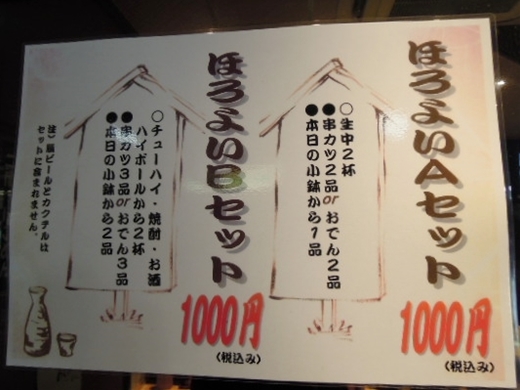 ほろよいAセット
○生中2杯
●串カツ2品orおでん2品
●本日の小鉢から1品
1000円
(税込み)
ほろよいBセット
○チューハイ・焼酎・お酒
ハイボールから2杯
●串カツ3品orおでん3品
●本日の小鉢から2品
1000円
(税込み)
注)瓶ビールとカクテルは
セットに含まれません。